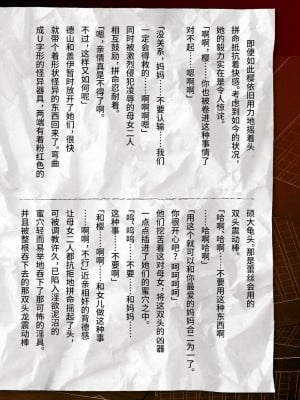 即便如此樱依旧用力地摇着头
拼命抵抗着快感。考虑到如今的状况，
她的毅力实在是令人惊诧。
「啊啊，樱……你也被卷进这种事情了
对不起……嗯啊啊」
「没关系，妈妈……不要认输……我们
一定会得救的……啊啊啊嗯」
同时被激烈侵犯凌辱的母女二人
相互鼓励，拼命忍耐着。
「嗯。亲情真是不得了啊。
不过，这样又如何呢」
德山和盖伊暂时放开了她们，很快
就带着个形状怪异的东西回来了。弯曲
成U字形的怪异器具，两端有着粉红色的
硕大龟头。那是蕾丝会用的
双头震动棒。
「哈啊、哈啊……不要用这种东西啊
……哈啊哈啊」
「用这个就可以和你最爱的妈妈合二为一了。
你很开心吧？呵呵呵呵」
他们挖苦着这对母女，将这双头的凶器
一点点插进了她们的蜜穴之中。
「呜、呜呜……不要……和妈妈……
这种事……不要」
「和樱……啊啊……和女儿做这种事
……啊啊，不行」近亲相奸的背德感
让母女二人都抗拒地拼命摇起了头，
可被调教许久、已陷入淫欲泥沼的
蜜穴轻而易举地吞下了那可怖的淫具。
并且被整根吞下去的那双头龙震动棒